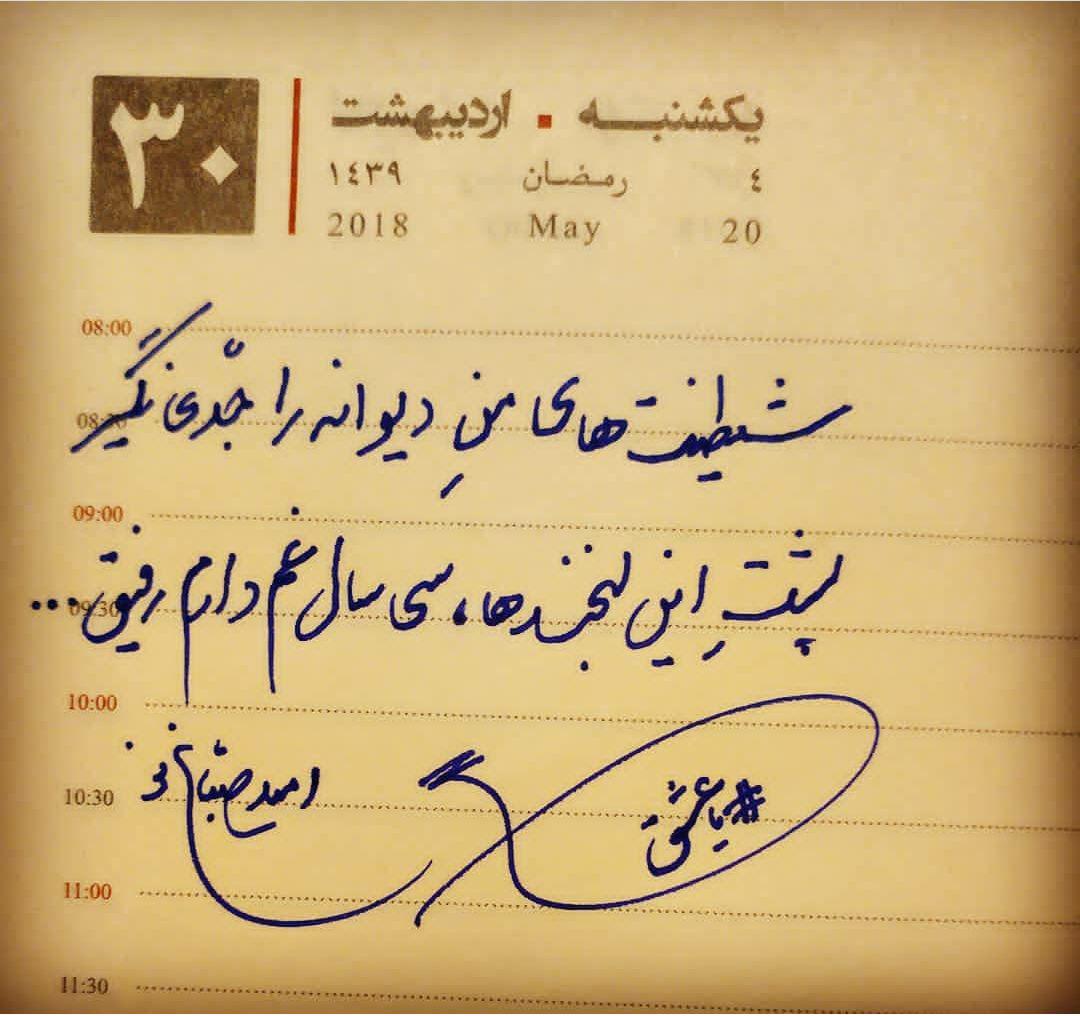 یکشنبه ▪ اردیبهشت ۳۰
٤ رمضان ١٤٣٩
20 May 2018
08:00
شیطنت های منِ دیوانه را جدّی نگیر
08:30
09:00
پشتِ این لبخندها، سی سال غم دارم رفیق...
09:30
10:00
#یاعشق
10:30 امید صباغ نو
11:00
11:30